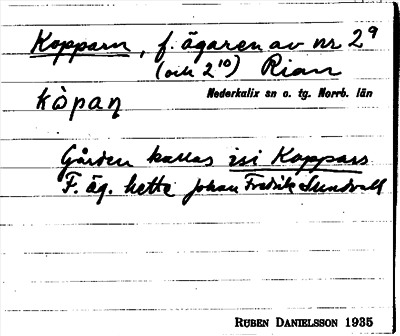 Kopparn, f. ägaren av nr 2⁹
(och 2¹⁰) Rian
kòpaɳ
Nederkalix sn o. tg. Norrb. län
Gården kallas isi Koppars
F. äg. hette Johan Fredrik Sundvall
RUBEN DANIELSSON 1935